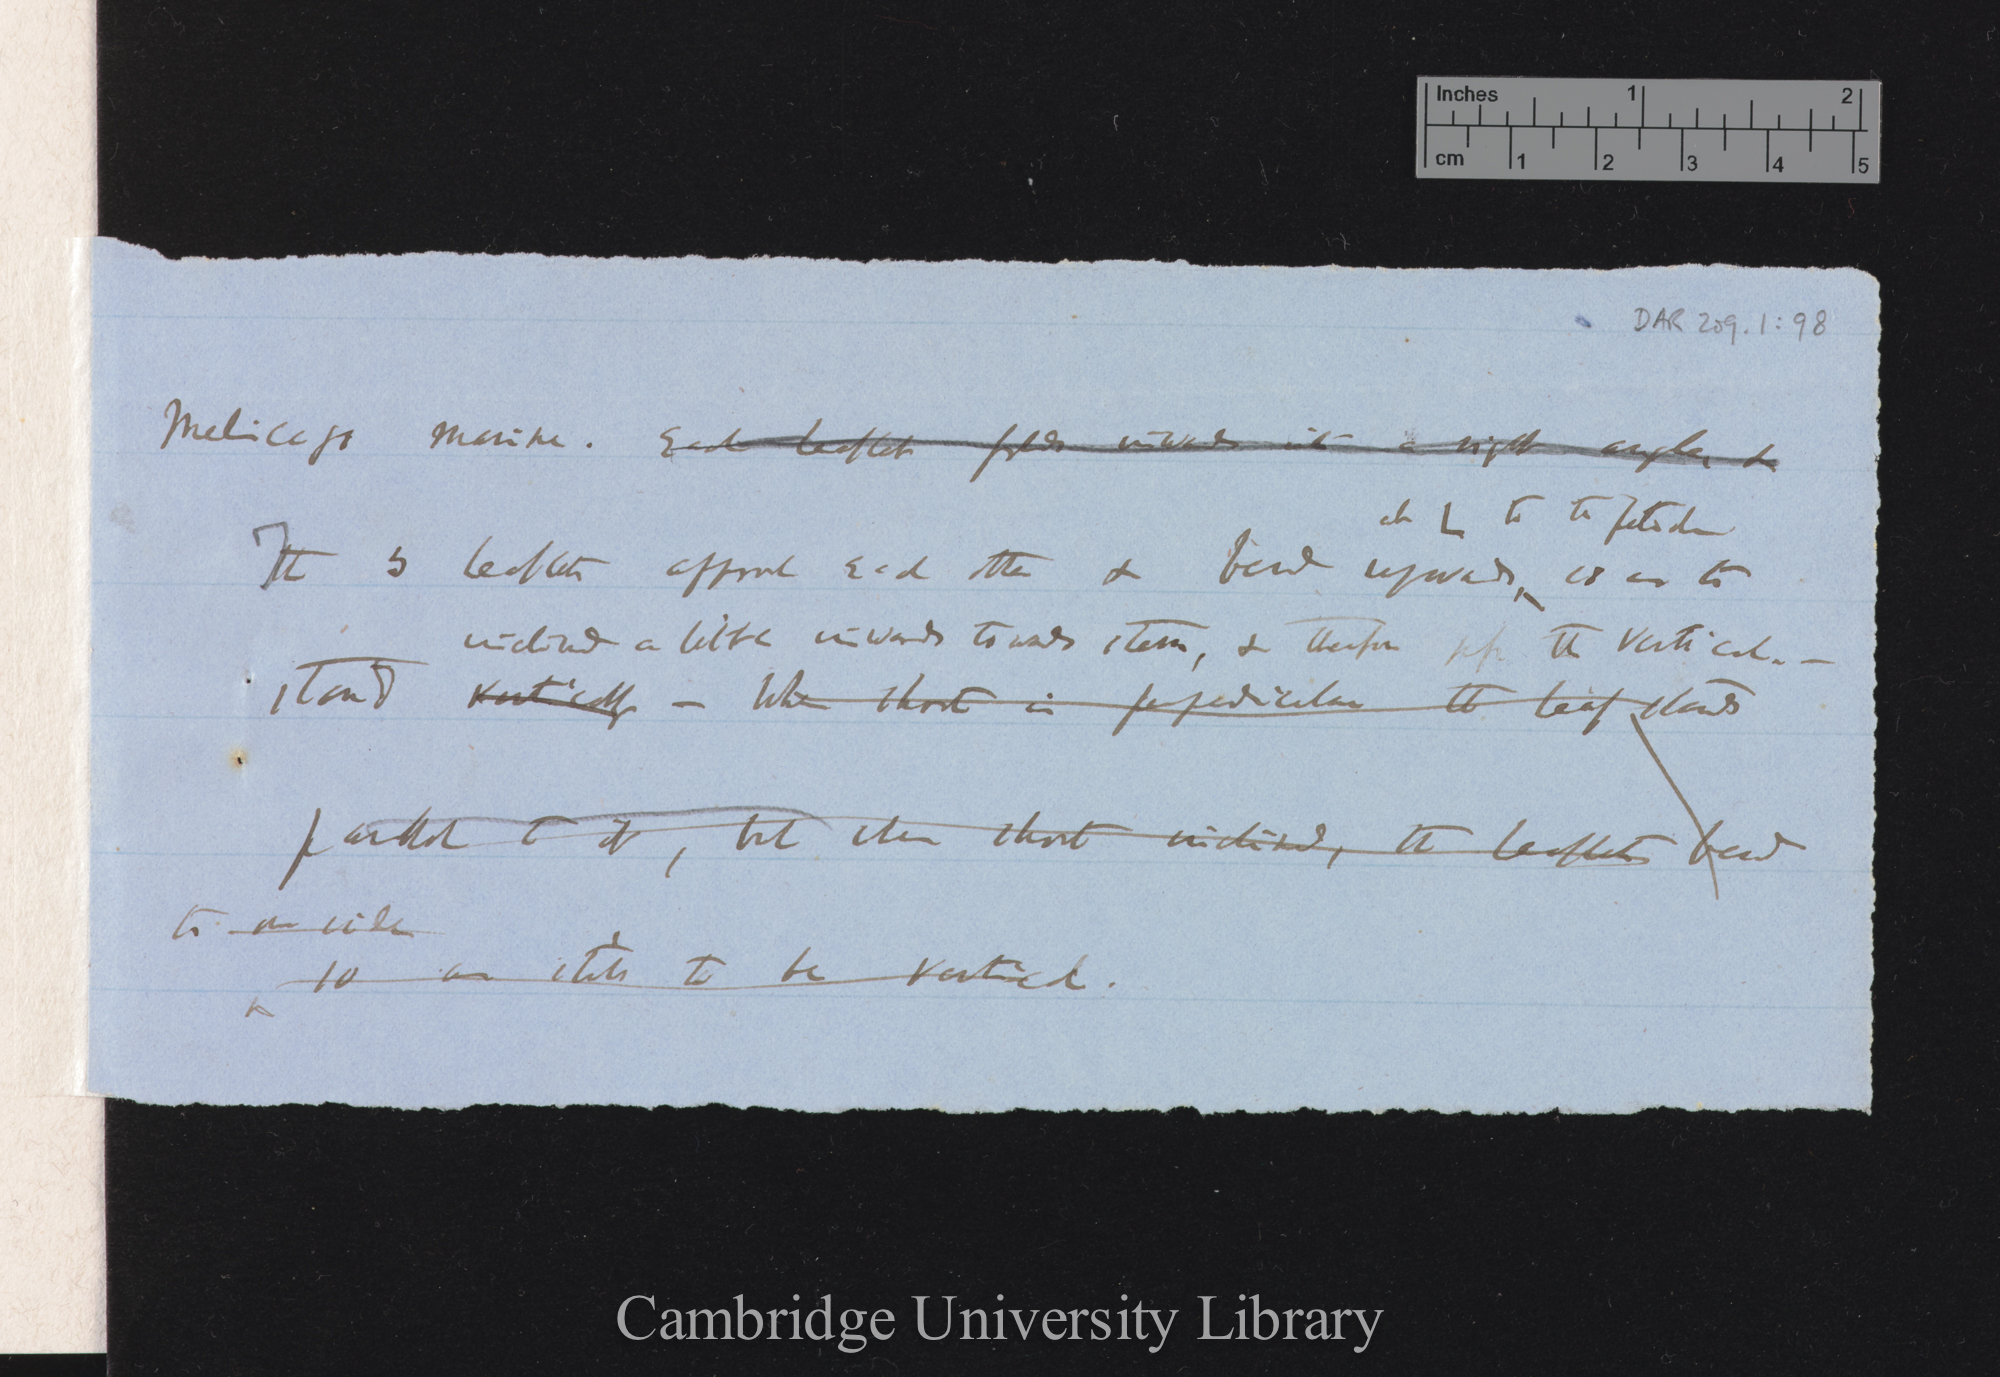 Inches 1 2
cm 1 2 3 4 5
DAR 209.1:98
Medicago marina. Each leaflet folds inwards at a right angle, &
at L to the petiole
The 3 leaflets approach each other & bend upwards, so as to
inclined a little inwards towards stem, & therefore the vertical. —
stand vertically — When shoot is perpendicular the leaf stands
parallel to it, but when shoot inclined, the leaflets bend
to one side
so as still to be vertical.
Cambridge University Library